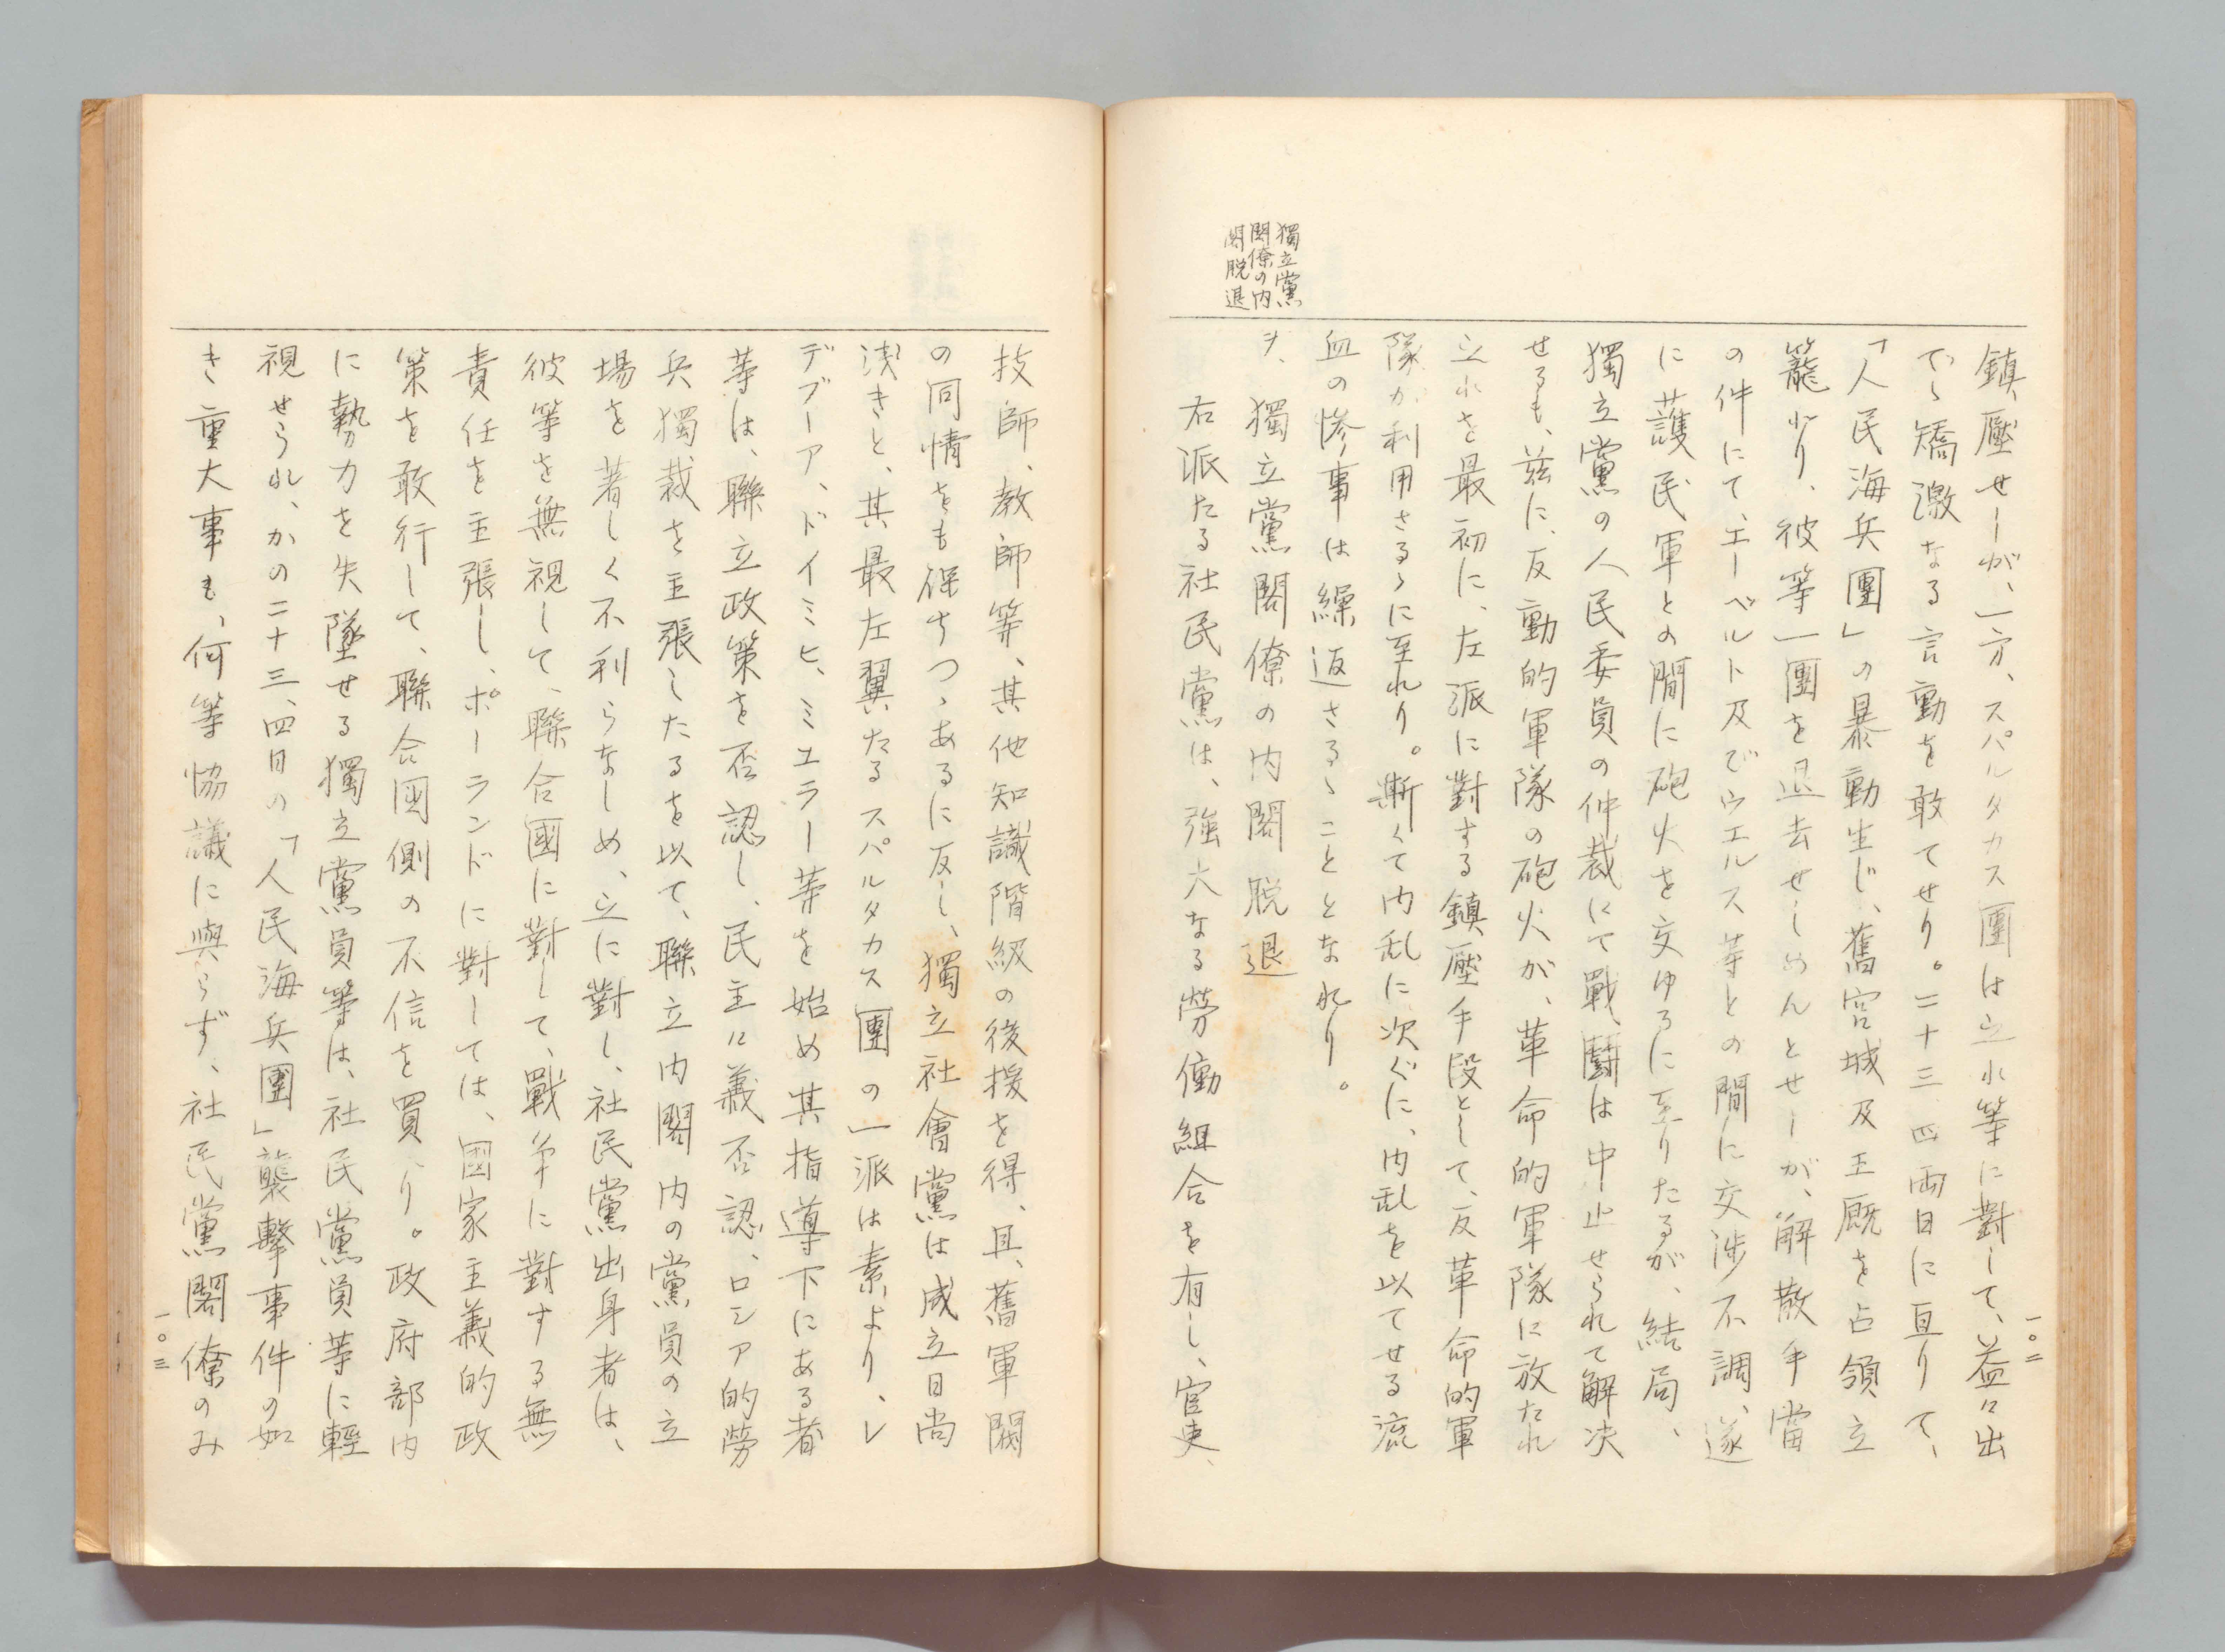 獨立黨
閣僚の内
閣脱退
鎮壓せしが、一方、スパルタカス團は之れ等に對して、益々出
でゝ矯激なる言動を敢てせり。二十三、四両日に亘りて、
「人民海兵團」の暴動生じ、舊宮城及王廐を占領立
籠れり、彼等一團を退去せしめんとせしが、解散手當
の件にて、エーベルト及びウエルス等との間に交渉不調、遂
に護民軍との間に砲火を交ゆるに至りたるが、結局、
獨立黨の人民委員の仲裁にて戰鬪は中止せられて解決
せるも、茲に、反動的軍隊の砲火が、革命的軍隊に放たれ
之れを最初に、左派に對する鎮壓手段として、反革命的軍
隊が利用さるゝに至れり。斯くて内乱に次ぐに、内乱を以てせる流
血の惨事は繰返さるゝこととなれり。
ヲ、獨立黨閣僚の内閣脱退
右派たる社民黨は、強大なる勞働組合を有し、官吏、
一〇二
技師、教師等、其他知識階級の後援を得、且、舊軍閥
の同情をも保ちつゝあるに反し、獨立社會黨は成立日尚
浅きと、其最左翼たるスパルタカス團の一派は素より、レ
デブーア、ドイミヒ、ミユラー等を始め其指導下にある者
等は、聯立政策を否認し、民主々義否認、ロシア的勞
兵獨裁を主張したるを以て、聯立内閣内の黨員の立
場を著しく不利らなしめ、之に對し、社民黨出身者は、
彼等を無視して、聯合國に對して、戰爭に對する無
責任を主張し、ポーランドに對しては、國家主義的政
策を敢行して、聯合國側の不信を買へり。政府部内
に勢力を失墜せる獨立黨員等は、社民黨員等に輕
視せられ、かの二十三、四日の「人民海兵團」襲撃事件の如
き重大事も、何等協議に與らず、社民黨閣僚のみ
一〇三